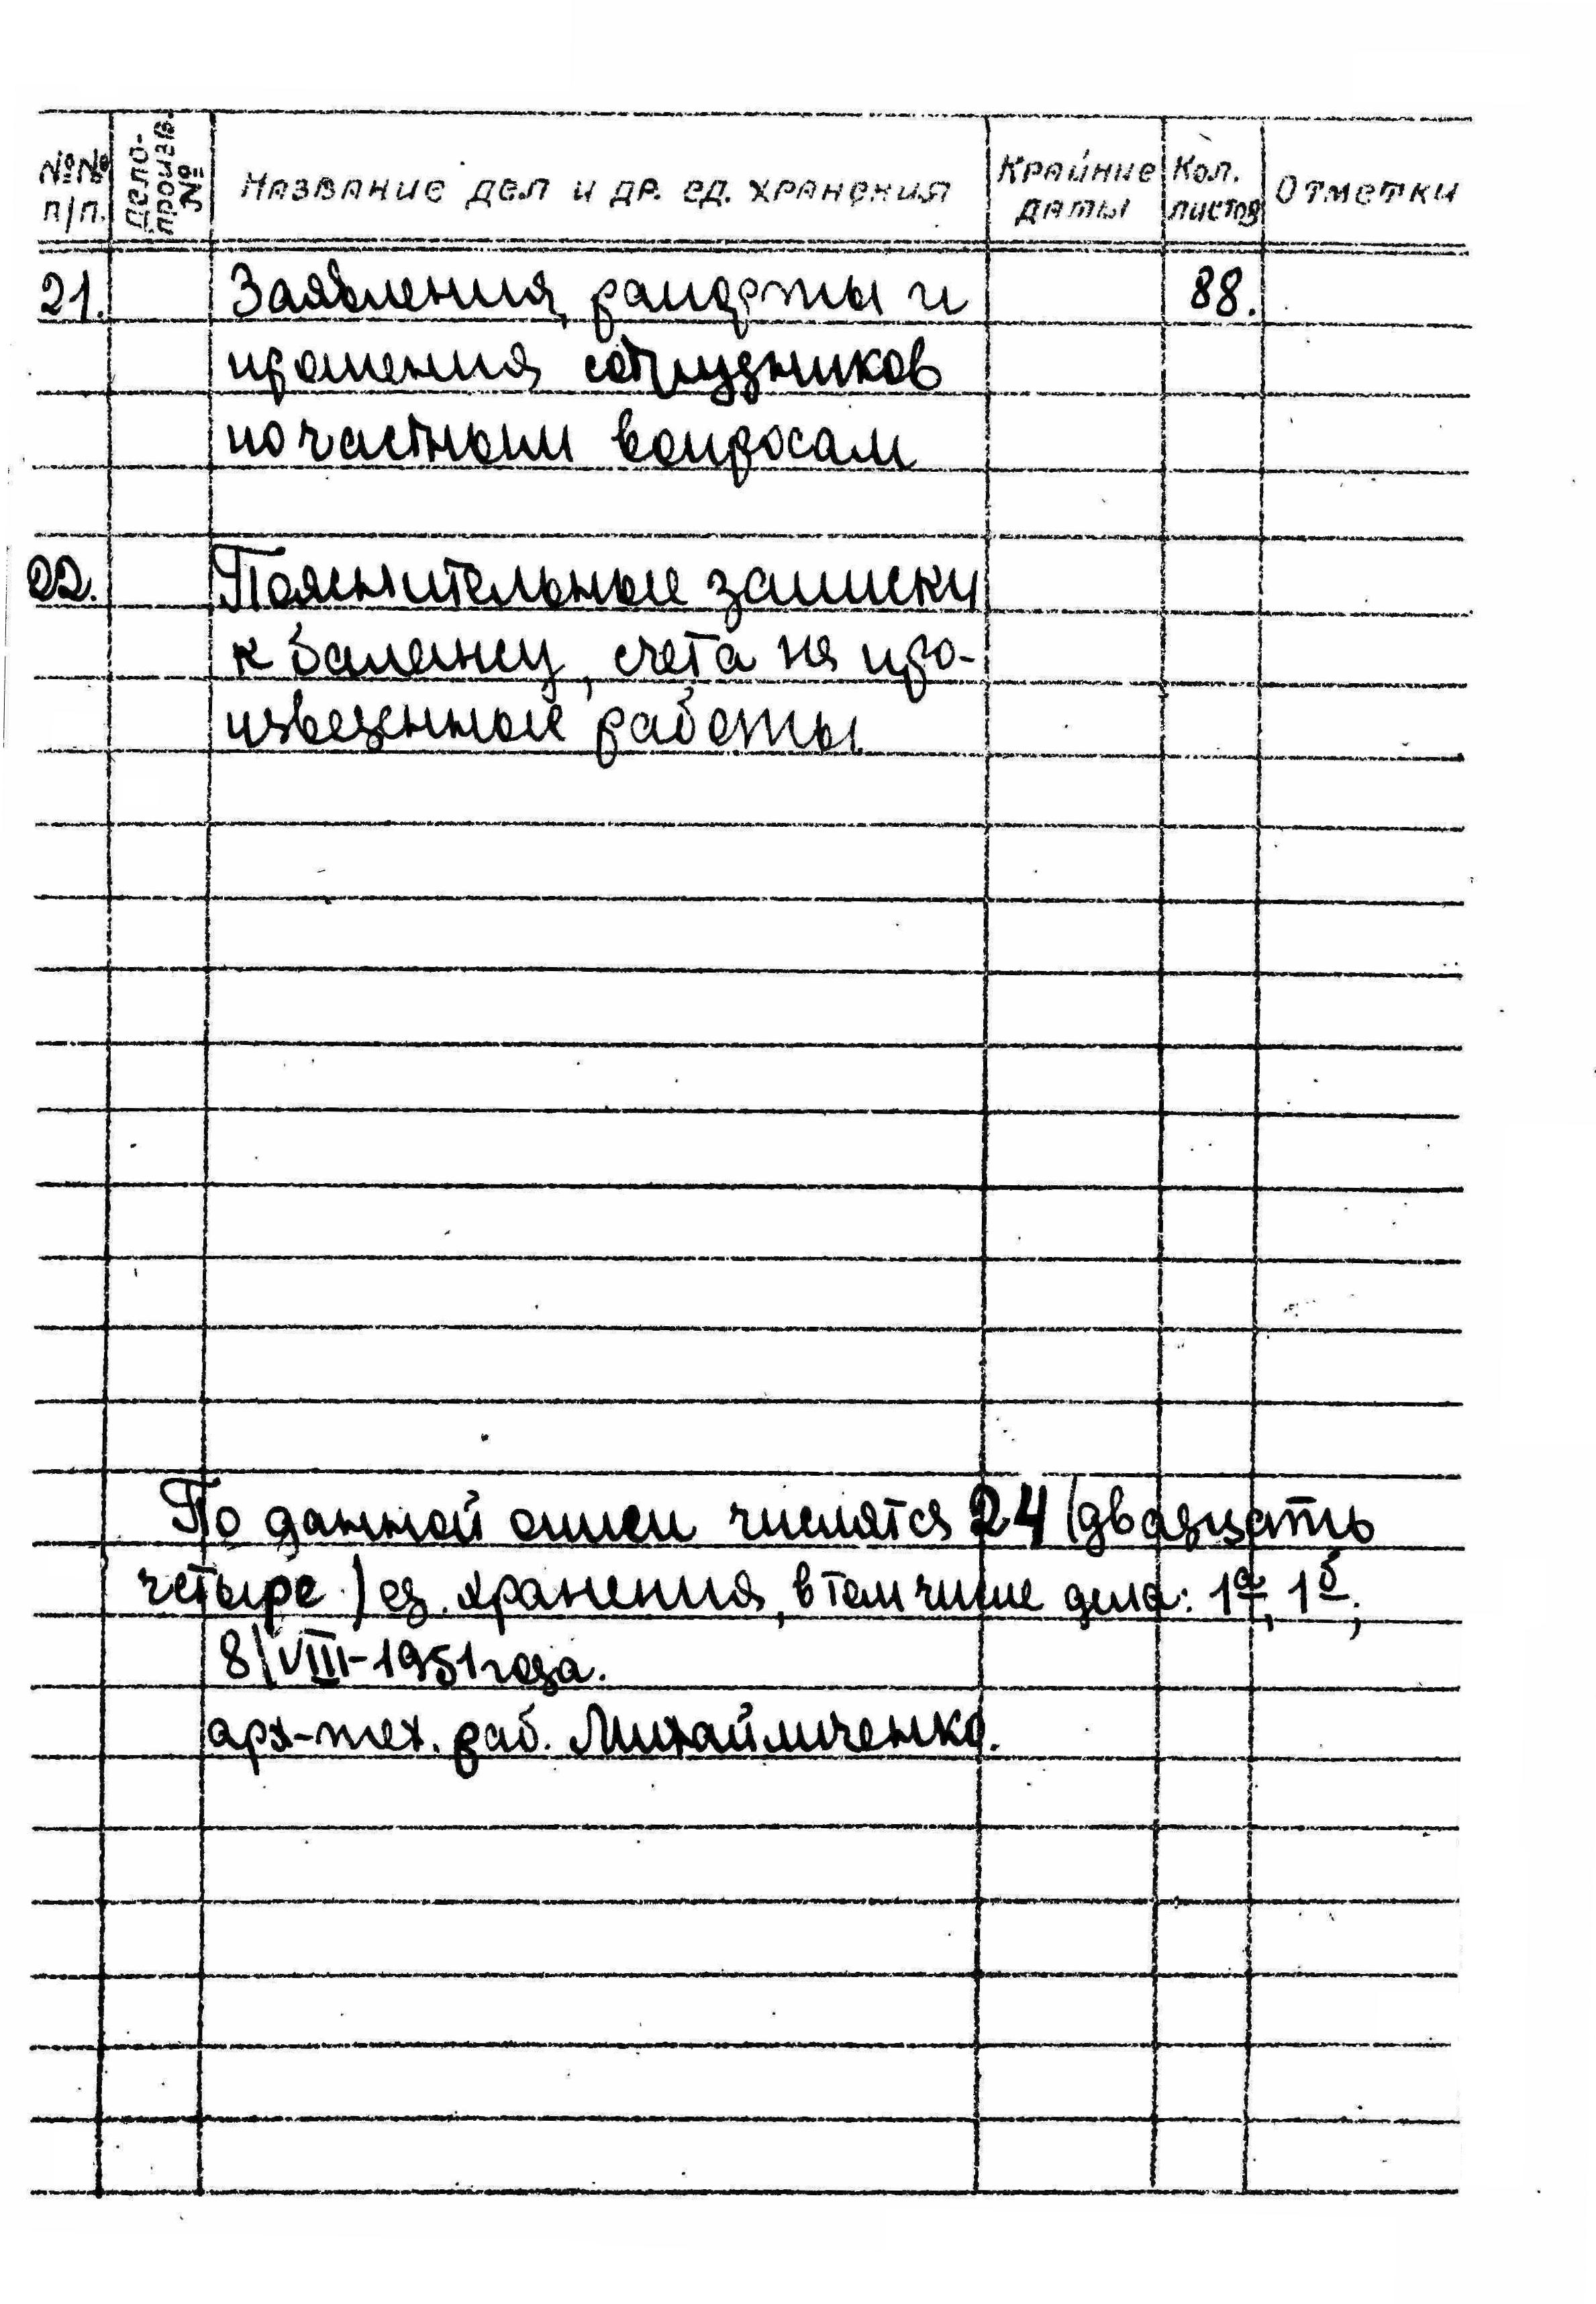 №№ п/п. Делопроизв. № Название дел и др. ед. хранения Крайние даты Кол. листов Отметки
21. Заявления, рапорты и 88.
прошения сотрудников
по частным вопросам
22. Пояснительные записки
к балансу, счета на про-
изведенные работы
По данной описи числятся 24 (двадцать
четыре) ед. хранения, в том числе дела: 1а, 1б;
8/VIII-1951 года.
арх-тех. раб. Михайличенко.